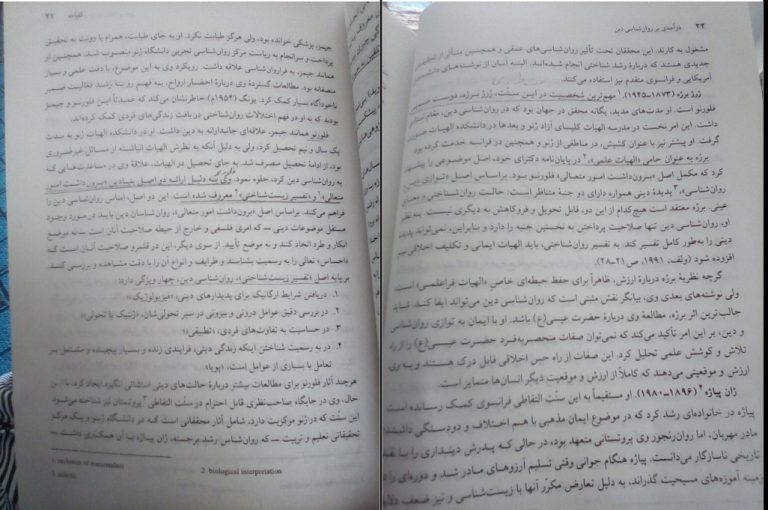 کلیات ۲۱
جیمز، پزشکی خوانده بود، ولی هرگز طبابت نکرد. او به جای طبابت، همراه با وونت به تحقیق
پرداخت و سرانجام به ریاست مرکز روان‌شناسی تجربی دانشگاه ژنو منصوب شد. همچنین او
همانند جیمز، به فراروان‌شناسی علاقه داشت. رویکرد وی به این موضوع، با دقت علمی و بسیار
منصفانه بود. مطالعات گسترده وی دربارهٔ احضار ارواح، به فهم ضمیر
ناخودآگاه بسیار کمک کرد. یونگ (۱۹۵۴م) خاطرنشان می‌کند که عمدتاً این فلورنو و جیمز
بودند که به او در فهم اختلالات روان‌شناختی در بافت زندگی‌های فردی کمک کرده‌اند.
فلورنو همانند جیمز، علاقه‌ای جانبدارانه به دین داشت. او در دانشکده الهیات ژنو به مدت
یک سال و نیم تحصیل کرد، ولی به دلیل آنکه به نظرش الهیات انباشته از مسائل غیرضروری
بود، از ادامهٔ تحصیل منصرف شد. به جای تحصیل در الهیات، علاقهٔ وی در
به روان‌شناسی دین کرد، جلوه نمود. وی به دلیل ارائه دو اصل بنیادین «برون‌داشت امور
متعالی»۱ و «تفسیر زیست‌شناختی»۲ معروف شده است. این دو اصل، اساس روان‌شناسی دین را
فراهم می‌کند. براساس اصل «برون‌داشت امور متعالی»، روان‌شناسان دین باید درصورد وجود
مستقل موضوعات دینی که امری فلسفی و خارج از حیطه صلاحیت آنان است نه موضع
انکار و طرد اتخاذ کنند و نه موضع تأیید. از سوی دیگر، این در قلمرو صلاحیت آنان است که
«احساس» تعالی را به رسمیت بشناسند و ظرایف و انواع آن را با دقت مشاهده و بررسی کنند.
برپایه اصل «تفسیر زیست‌شناختی»، روان‌شناسی دین، چهار ویژگی دارد:
۱. دریافتن شرایط ارگانیک برای پدیدارهای دینی، «فیزیولوژیک»
۲. در بررسی دقیق عوامل درونی و بیرونی در سیر تحولی‌شان، «ژنتیک یا تحولی»
۳. در حساسیت به تفاوت‌های فردی، «تطبیقی»
۴. در به رسمیت شناختن اینکه زندگی دینی، فرایندی زنده و بسیار پیچیده و مشتمل بر
تعامل با بسیاری از عوامل است، «پویا»
هرچند آثار فلورنو برای مطالعات بیشتر دربارهٔ حالت‌های دینی استثنائی انگیزه ایجاد کرد، با این
حال، وی در جایگاه صاحب‌نظری قابل احترام در سنّت التقاطی۳ پروتستان نیز شناخته می‌شود
این سنّت که در ژنو مرکزیت دارد، شامل آثار محققانی است که در دانشگاه ژنو و یک مرکز
تحقیقاتی تعلیم و تربیت — که روان‌شناس رشد برجسته، ژان پیاژه با آن همکاری داشت —
1. exclusion of transcendent
2. biological interpretation
3. eclectic
۲۲ درآمدی بر روان‌شناسی دین
مشغول به کارند. این محققان تحت تأثیر روان‌شناسی‌های عمقی و همچنین متأثر از تحقیقات
جدیدی هستند که دربارهٔ رشد شناختی انجام شده‌اند. البته آنان از نوشته‌های
آمریکایی و فرانسوی متقدم نیز استفاده می‌کنند.
ژرژ برژه (۱۸۷۳–۱۹۴۵).۱ مهم‌ترین شخصیت در این سنّت، ژرژ برژه، دوست صمیمی
فلورنو است. او مدت‌های مدید، یگانه محقق در جهان بود که در روان‌شناسی دین، مقام استادی
داشت. این امر نخست در مدرسه الهیات کلیسای آزاد ژنو و بعدها در دانشکده الهیات صورت
گرفت. او پیشتر نیز با عنوان کشیش، در مناطقی از ژنو و همچنین در فرانسه خدمت کرده بود.
برژه به عنوان حامی «الهیات علمی»،۲ در پایان‌نامه دکترای خود، اصل موضوعی را پیشنهاد
کرد که مکمل اصل «برون‌داشت امور متعالی» فلورنو بود. براساس اصل «توازی دین و
روان‌شناسی»،۳ پدیدهٔ دینی همواره دارای دو جنبهٔ متناظر است: حالت روان‌شناختی و معنای
عینی. برژه معتقد است هیچ‌کدام از این دو، قابل تحویل و فروکاهش به دیگری نیست. به نظر
او، روان‌شناسی دین تنها صلاحیت پرداختن به نخستین جنبه را دارد و بنابراین، نمی‌تواند پدیده
دینی را به‌طور کامل تفسیر کند. به تفسیر روان‌شناختی، باید الهیات ایمانی و تکلیف اخلاقی نیز
افزوده شود (ولف، ۱۹۹۱، ص۲۱–۲۸).
گرچه نظریهٔ برژه دربارهٔ ارزش، ظاهراً برای حفظ حیطه‌ای خاص «الهیات فراعلمی» است،
ولی نوشته‌های بعدی وی، بیانگر نقش مثبتی است که روان‌شناسی دین می‌تواند ایفا کند. شاید
جالب‌ترین اثر برژه، مطالعهٔ وی دربارهٔ حضرت عیسی(ع) باشد. او با ایمان به توازی روان‌شناسی
و دین، بر این امر تأکید می‌کند که نمی‌توان صفات منحصربه‌فرد حضرت عیسی(ع) را از راه
تلاش و کوشش علمی تحلیل کرد. این صفات از راه حس اخلاقی قابل درک هستند و به وی
ارزش و موقعیتی می‌دهند که کاملاً از ارزش و موقعیت دیگر انسان‌ها متمایز است.
ژان پیاژه۴ (۱۸۹۶–۱۹۸۰). او مستقیماً به این سنّت التقاطی فرانسوی کمک رسانده است
پیاژه در خانواده‌ای رشد کرد که در موضوع ایمان مذهبی با هم اختلاف و دودستگی داشتند.
مادر مهربان، اما روان‌رنجور وی پروتستانی متعهد بود، در حالی که پدرش دینداری را با نقد
تاریخی ناسازگار می‌دانست. پیاژه هنگام جوانی وقتی تسلیم آرزوهای مادر شد و دوره‌ای در
زمینه آموزه‌های مسیحیت گذراند، به دلیل تعارض مکرّر آنها با زیست‌شناسی و نیز ضعف دلایل